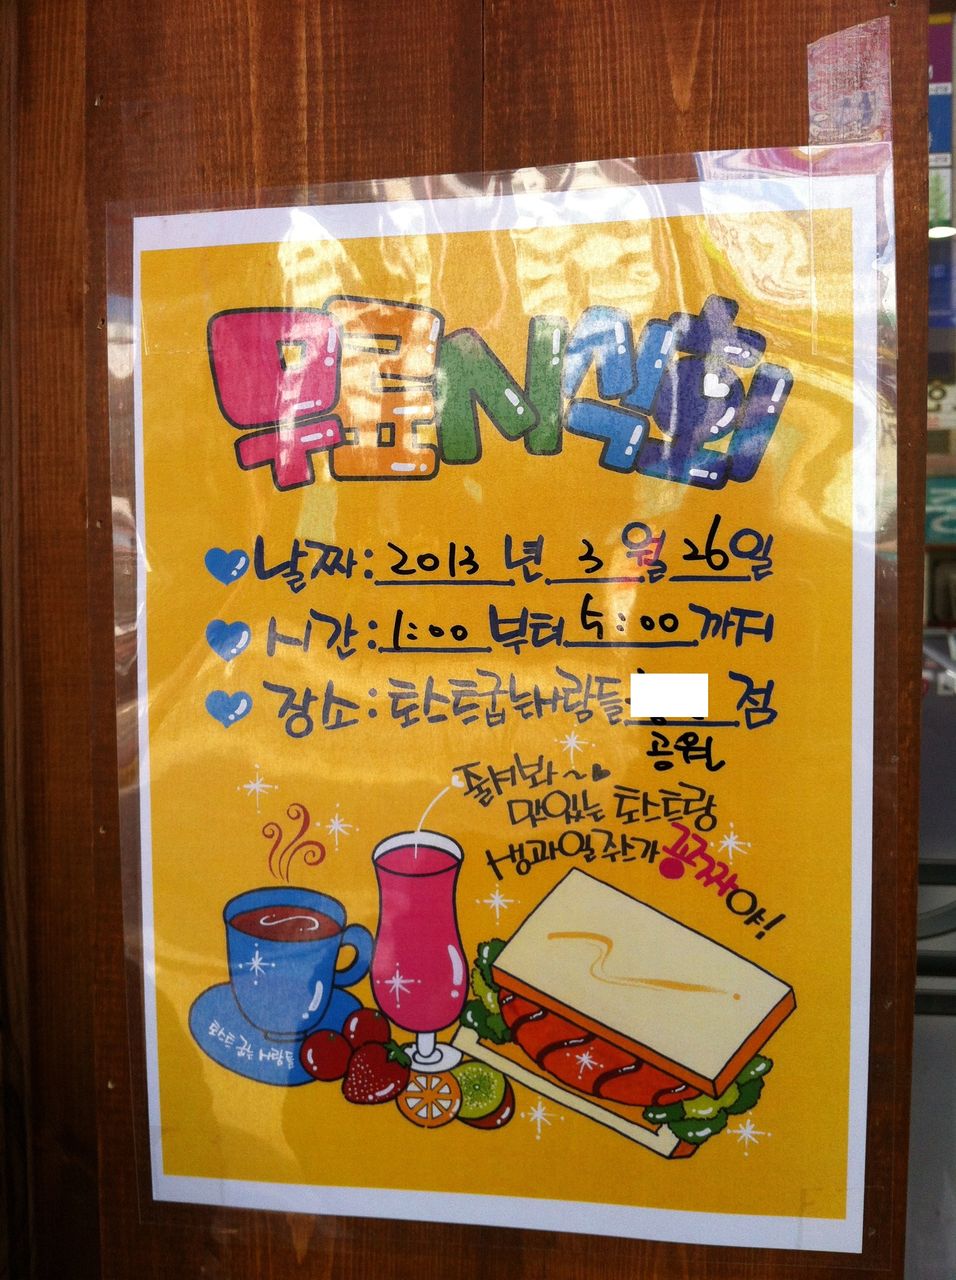 무료시식회
날짜: 2013 년 3 월 26 일
시간: 1:00 부터 5:00 까지
장소: 토스트굽는사람들 점
공원
들려봐~
맛있는 토스트랑
생과일쥬스가 공짜야!
토스트굽는사람들